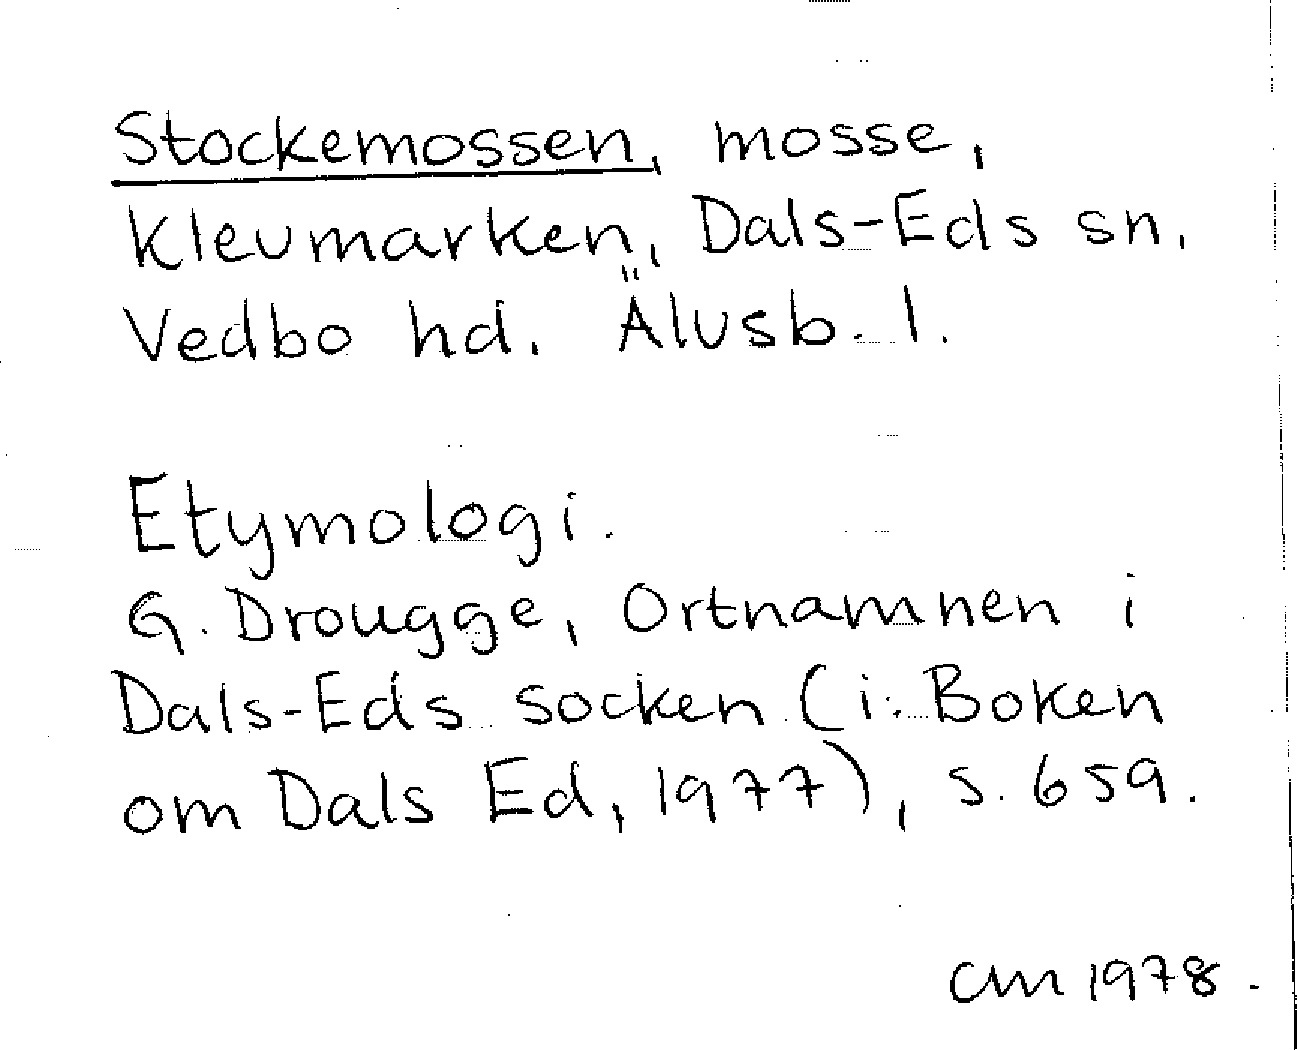 Stockemossen, mosse,
Klevmarken, Dals-Eds sn,
Vedbo hd. Älvsb. l.
Etymologi.
G. Drougge, Ortnamnen i
Dals-Eds socken (i: Boken
om Dals Ed, 1977), s. 659.
CM 1978.